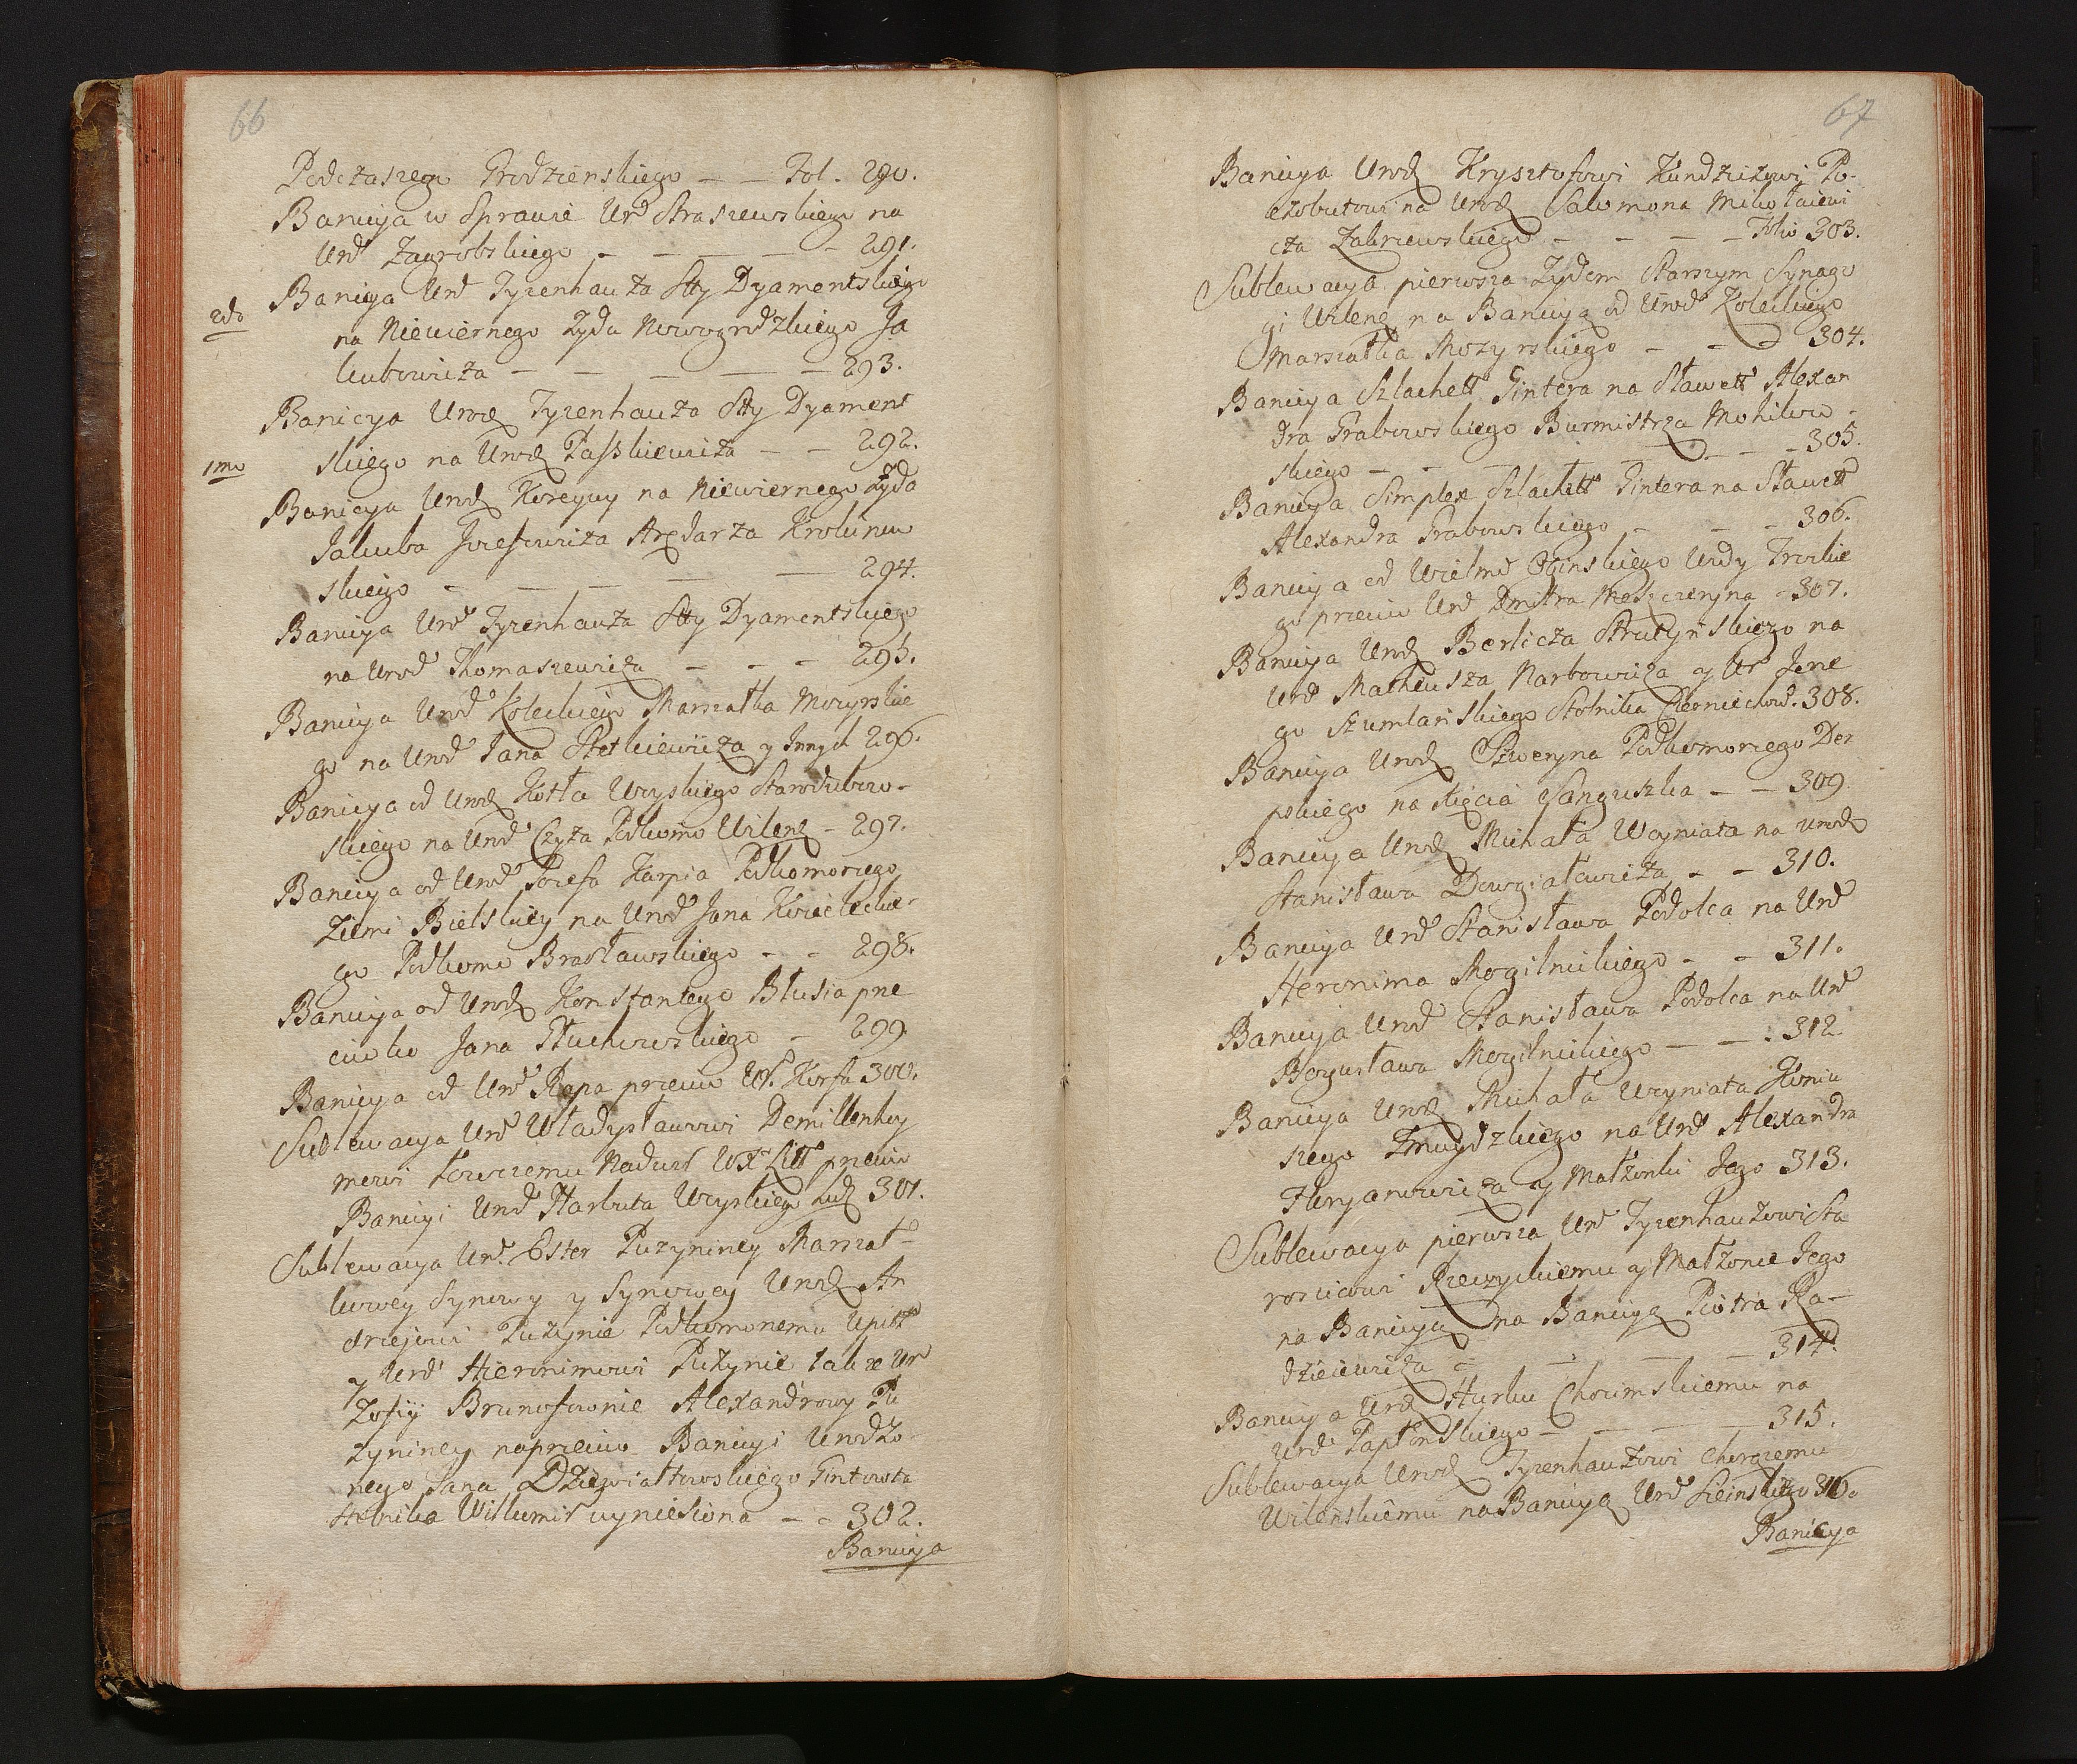 66
Podczaszego Grodzienskiego – – Fol. 290.
Banicya w Sprawie Ur͠d Straszewskiego na
Ur͠d Zagrobskiego – – – – – 291.
Banicya Ur͠d Tyzenhauza Stty Dyamentskiego
2do
na Niewiernego Zyda Nowogrodzkiego Ja
kubowicza – – – – – 293.
Banicya Urodz Tyzenhauza Stty Dyament
skiego na Urodz Paszkiewicza – – 292.
1mo
Banicya Urodz Koreywy na Niewiernego Zyda
Jakuba Jozefowicza Arędarza Krolinow
skiego – – – – – 294.
Banicya Ur͠d Tyzenhauza Stty Dyamentskiego
na Urod Thomaszewicza – – – 295.
Banicya Urod Koleckiego Marszałka Mozyrskie
go na Urod Jana Stetkiewicza y Innych 296.
Banicya od Urodz Kotła Woyskiego Starodubow-
skiego na Urod Czyża Podkomo Wilenz – 297.
Banicya od Urod Jozefa Karpia Podkomorzego
Ziemi Bielskiey na Urod Jana Kwiecieckie-
go Podkomo Brasławskiego – – 298.
Banicya od Urodz Konstantego Blusia prze
ciwko Jana Stuchowskiego – 299.
Banicya od Ur͠d Ropa przeciw Ur. Korfa 300.
Sublewacya Ur͠d Władysławowi Demillenhoy
merowi Łowczemu Nadwr WXLitt przeciw
Banicyi Ur͠d Narbuta Woyskiego Lidz 301.
Sublewacya Ur. Ester Puzyniney Marszał-
kowey Synowy y Synowey Urodz An
drzejowi Puzynie Podkomorzemu Upitt
y Ur͠d Hieronimowi Puzynie także Ur
Zofij Brunofownie Alexandrowy Pu
zyniney naprzeciw Banicyi Urodzo
nego Jana Dziewiałtowskiego Gintowta
Stolnika Wilkomir wyniesiona – – 302.
Banicya
67
Banicya Urodz Krysztofowi Kundziczowi Po-
czobutowi na Urodz Salomona Mikołaiewi
cza Zakrzewskiego – – – – Folio 303.
Sublewacya pierwsza Zydom Starszym Synago
gi Wilenz na Banicyą od Urod Koleckiego
Marszałka Mozyrskiego – – – 304.
Banicya Szlachett Gintera na Sławett Alexan
dra Grabowskiego Burmistrza Mohilew
skiego – – – – – – – 305.
Banicya Simplex Szlachett Gintera na Sławett
Alexandra Grabowskiego – – – 306.
Banicya od Wielmo Oginskiego Wdy Trockie
go przeciw Ur͠d Dmitra Meszczeryna – 307.
Banicya Urodz Berlicza Strutynskiego na
Ur͠d Matheusza Narbowicza y Ur Jene
go Szumlanskiego Stolnika Czerniechow. 308.
Banicya Urodz Szweryna Podkomorzego Der
pskiego na Xięcia Sanguszka – – 309.
Banicya Urodz Michała Woyniata na Urodz
Stanisława Dowgiałowicza – – 310.
Banicya Ur͠d Stanisława Podolca na Ur͠d
Heronima Mogilnickiego – – 311.
Banicya Urod Stanisława Podolca na Ur͠d
Bogusława Mogilnickiego – – – 312
Banicya Urodz Michała Woyniata Koniu
szego Zmuydzkiego na Ur͠d Alexandra
Floryanowicza y Małżonki Jego 313.
Sublewacya pierwsza Ur͠d Tyzenhauzowi Sta
roscicowi Rzeczyckiemu y Małżonce Jego
na Banicyą na Banicyą Piotra Ra-
dziciewicza – – – – – 314.
Banicya Urodz Hurku Chocimskiemu na
Ur͠d Papłonskiego – – – – 315.
Sublewacya Urodz Tyzenhauzowi Chorzemu
Wilenskiemu na Banicyą Ur͠d Sleinskiego 316.
Banicya